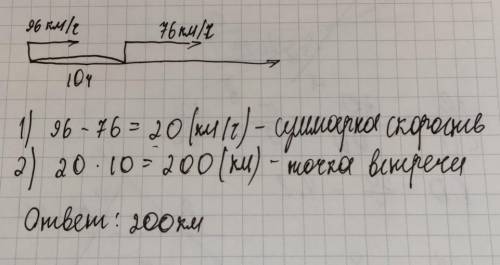 96 км/ч 76 км/ч
10ч
1) 96 - 76 = 20 (км/ч) - суммарна скорость
2) 20 · 10 = 200 (км) - точка встречи
Ответ: 200 км